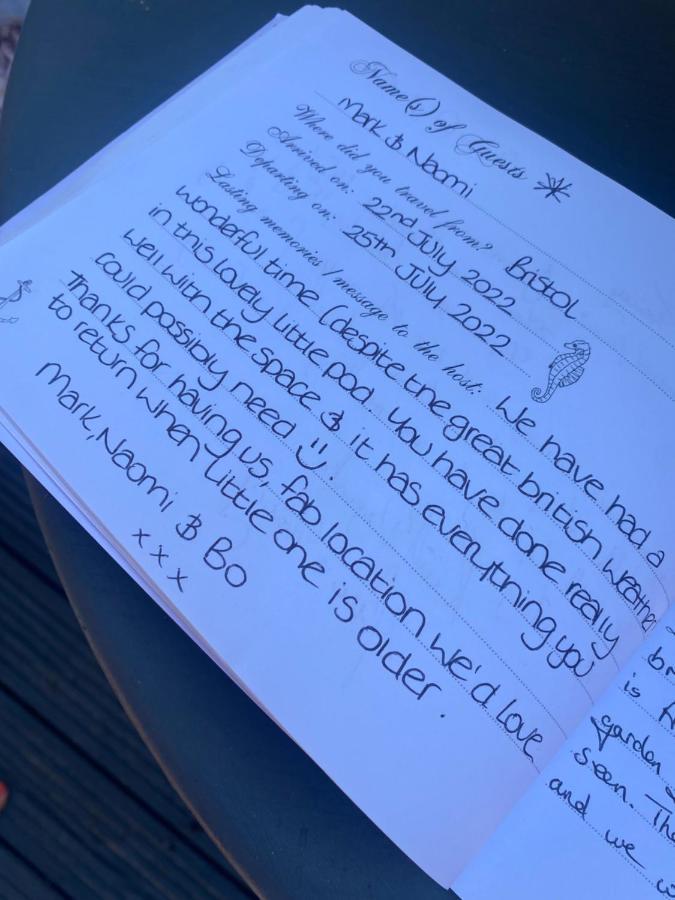 Name(s) of Guests
Mark & Naomi
Where did you travel from? Bristol
Arrived on: 22nd July 2022
Departing on: 25th July 2022
Lasting memories / message to the host: We have had a
wonderful time (despite the great british weather
in this lovely little pod. You have done really
well with the space & it has everything you
could possibly need :).
Thanks for having us, fab location we'd love
to return when little one is older.
Mark, Naomi & Bo
x x x
br
is
garden
seen. The
and we w